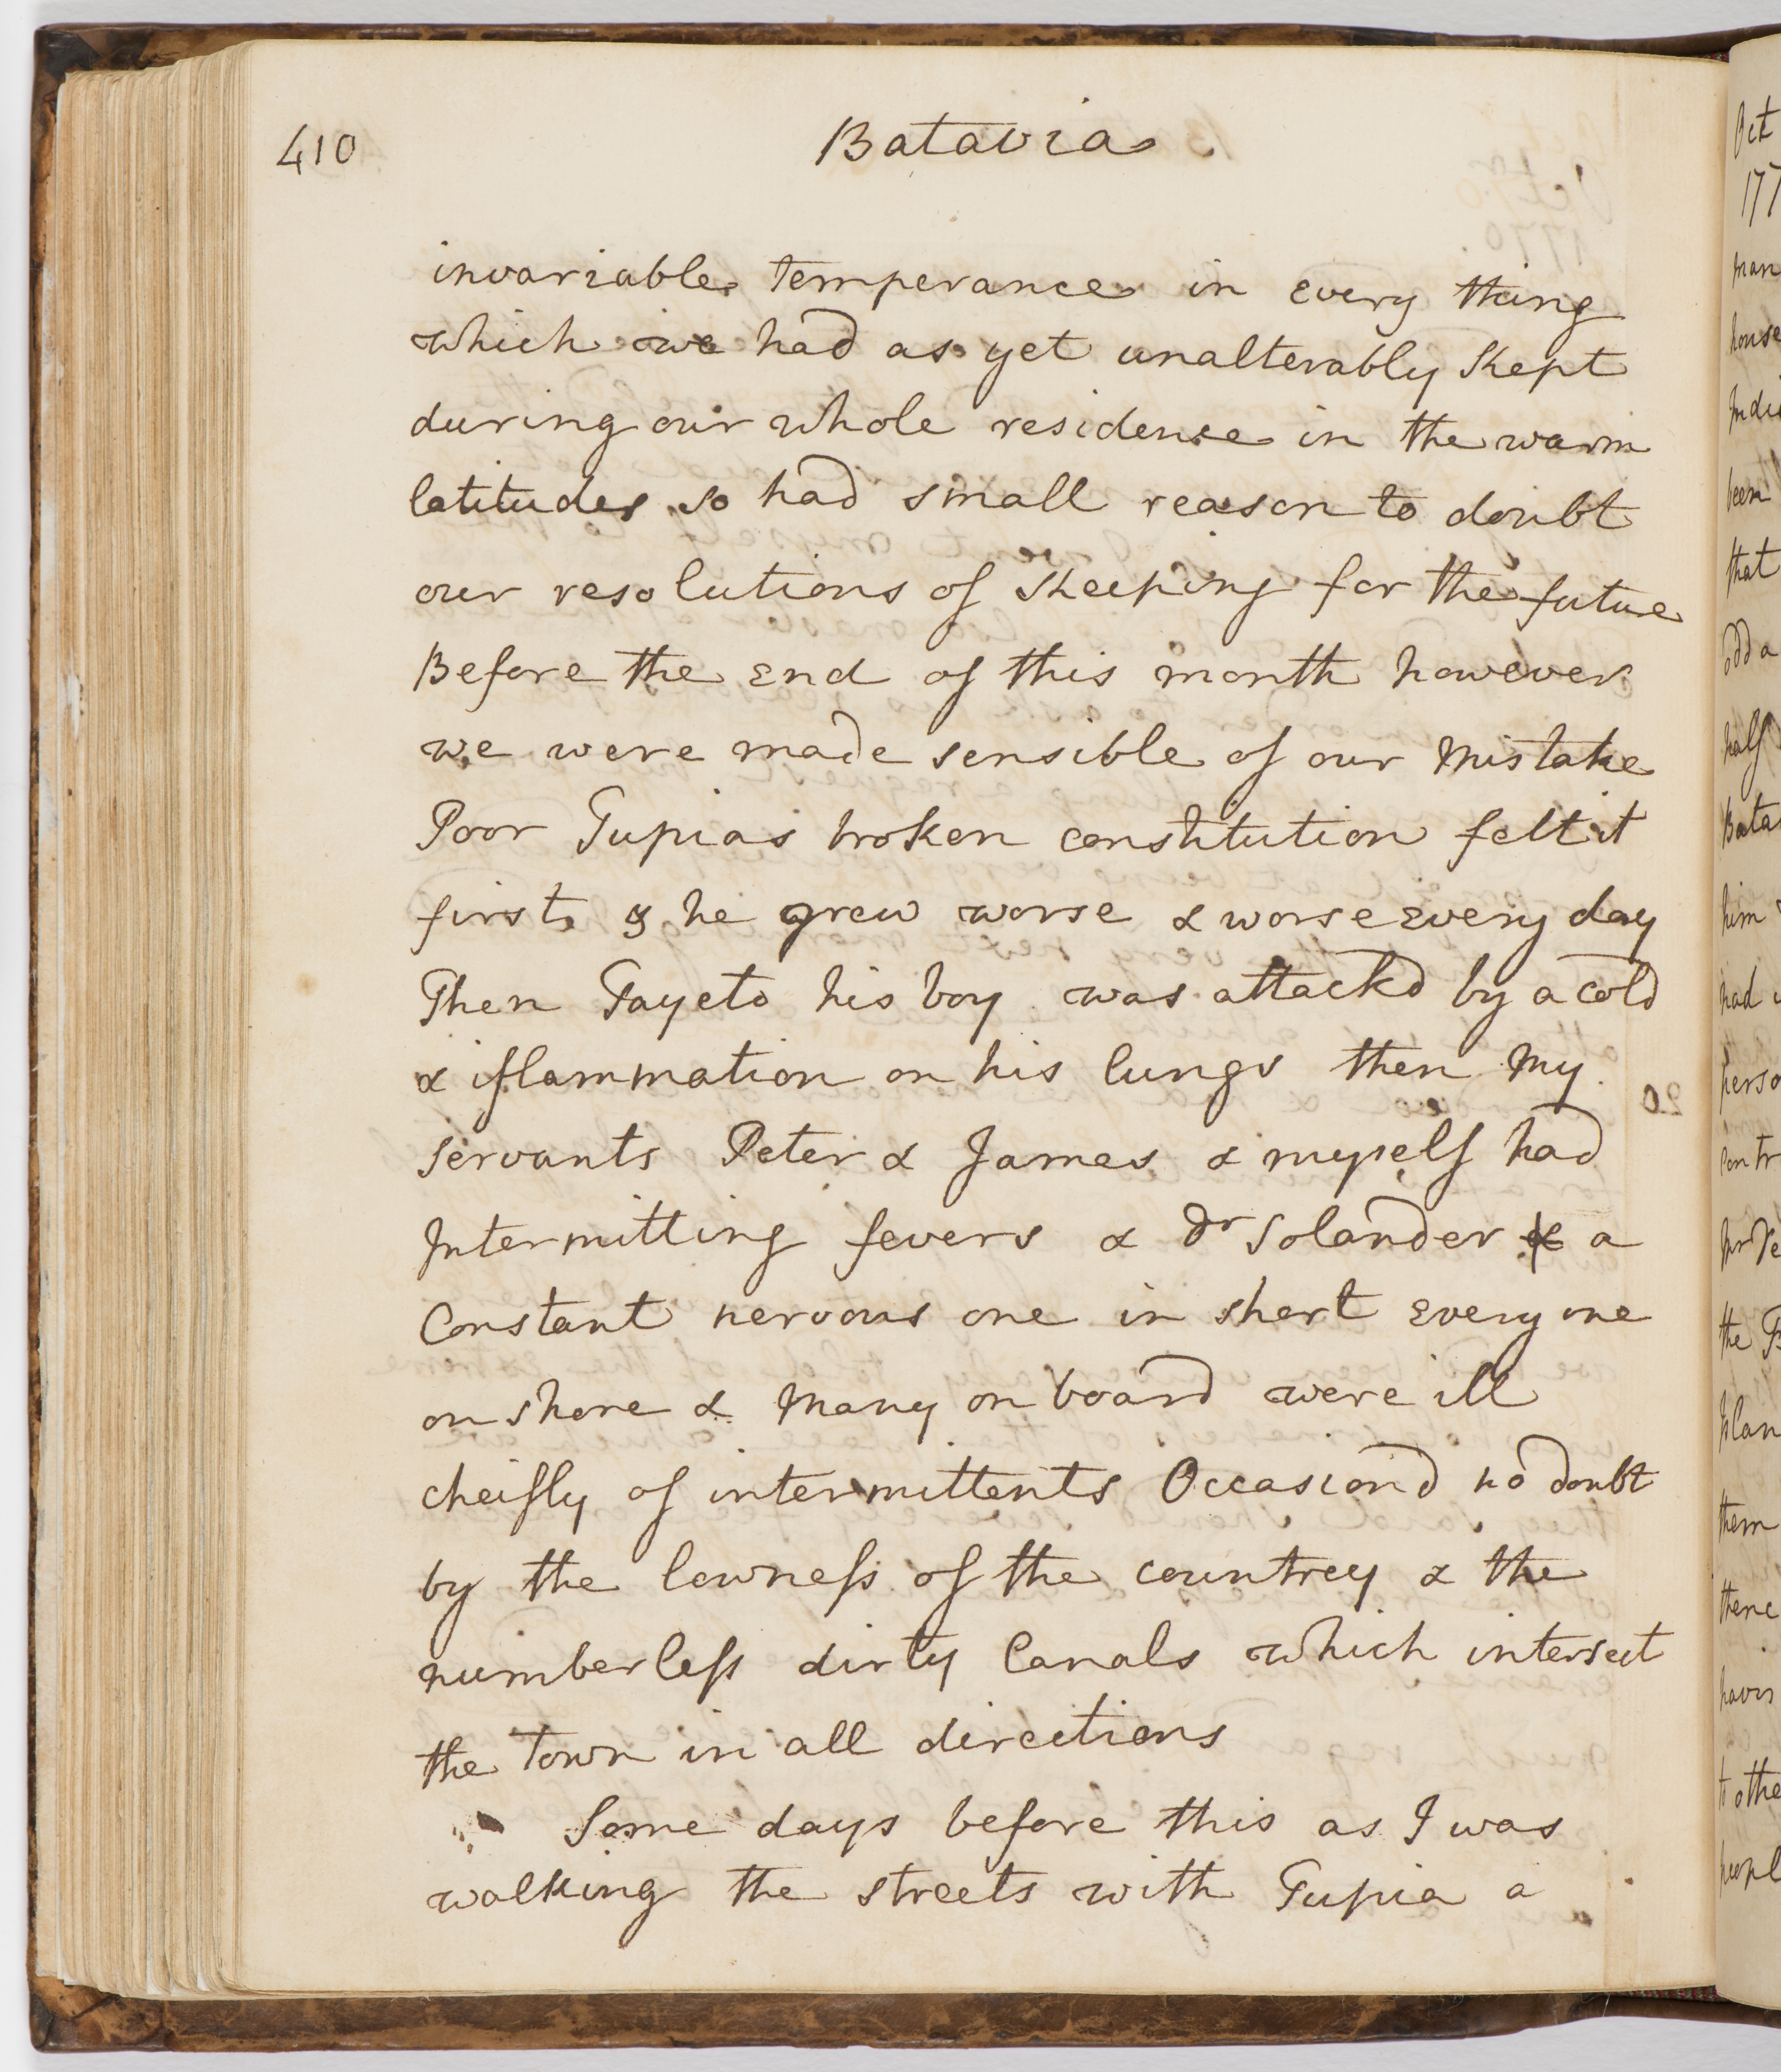 410
Batavia
invariable temperance in Every thing
which we had as yet unalterably kept
during our whole residence in the warm
latitudes so had small reason to doubt
our resolutions of keeping for the future
Before the End of this month however
we were made sensible of our Mistake
Poor Tupias broken constitution felt it
first & he grew worse & worse Every day
Then Tayeto his boy was attackd by a cold
& iflammation on his lungs then My
Servants Peter & James & myself had
Intermitting fevers & Dr Solander a
Constant nervous one in short Every one
on shore & Many on board were ill
cheifly of intermittents Occasiond no doubt
by the lowness of the countrey & the
numberless dirty Canals which intersect
the Town in all directions
Some days before this as I was
walking the streets with Tupia a
Oct
177
man
house
been
that
odd a
half
Bata
him
had
perso
contr
the
them
there
to othe
peopl